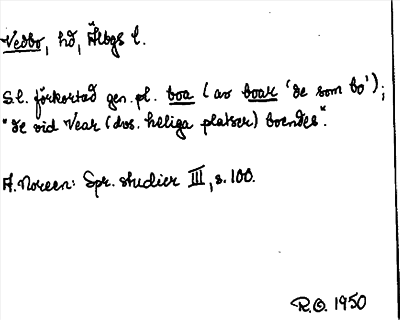 Vedbo, hd, Älvsgs l.
S.l. förkortad gen. pl. boa (av boar 'de som bo');
"de vid Vear (dvs. heliga platser) boendes".
A. Noreen: Spr. studier III, s. 100.
R.O. 1950